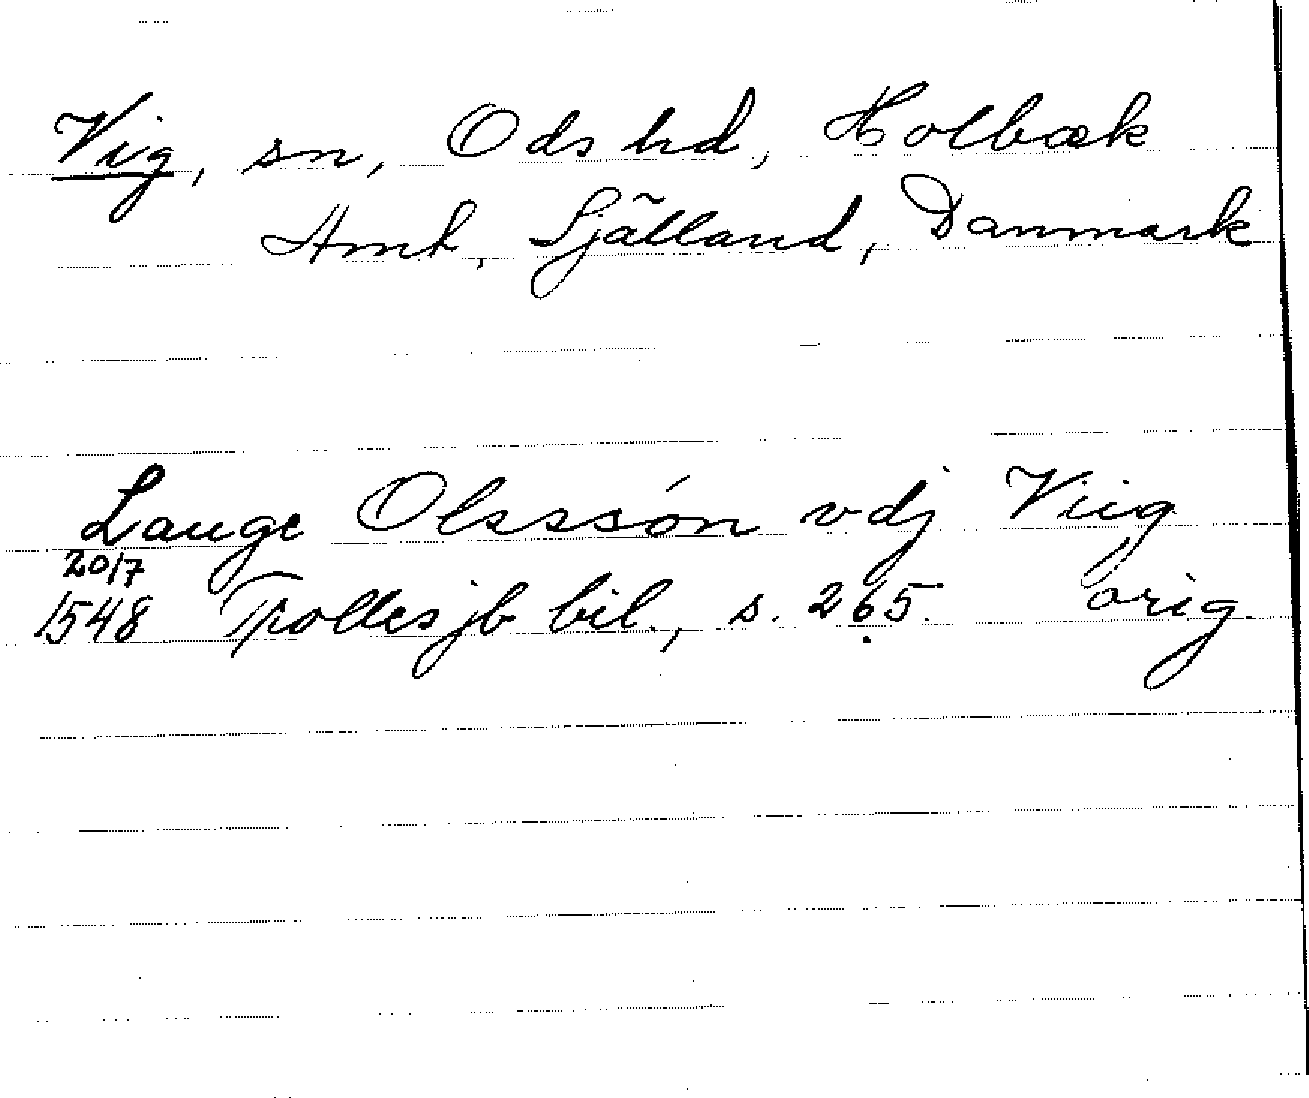 Vig, sn, Ods hd, Holbæk
Amt, Själland, Danmark
Lauge Olsssøn vdj Viig
20/7
1548 Trollesjb bil., s. 265. orig.